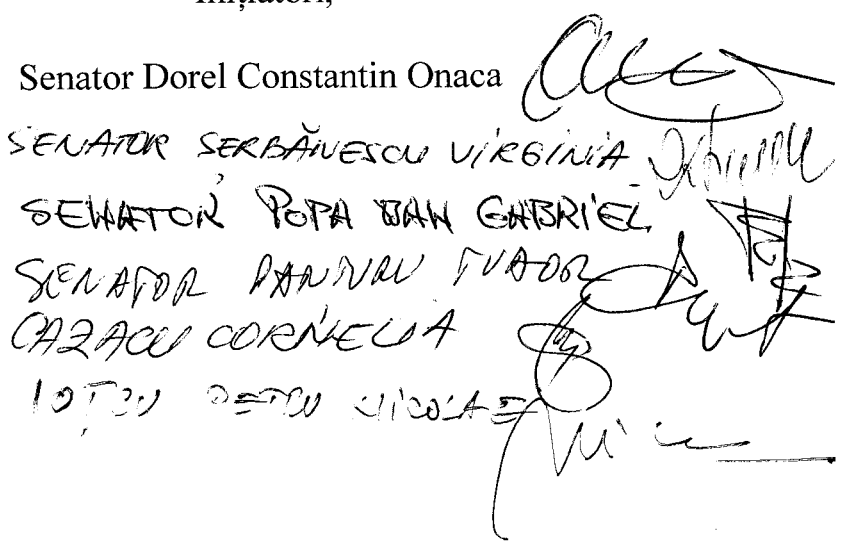 Inițiatori,
Senator Dorel Constantin Onaca
SENATOR SERBĂNESCU VIRGINIA
SENATOR POPA DAN GABRIEL
SENATOR PANȚURU TUDOR
CAZACU CORNELIA
IOȚCU PETRU NICOLAE